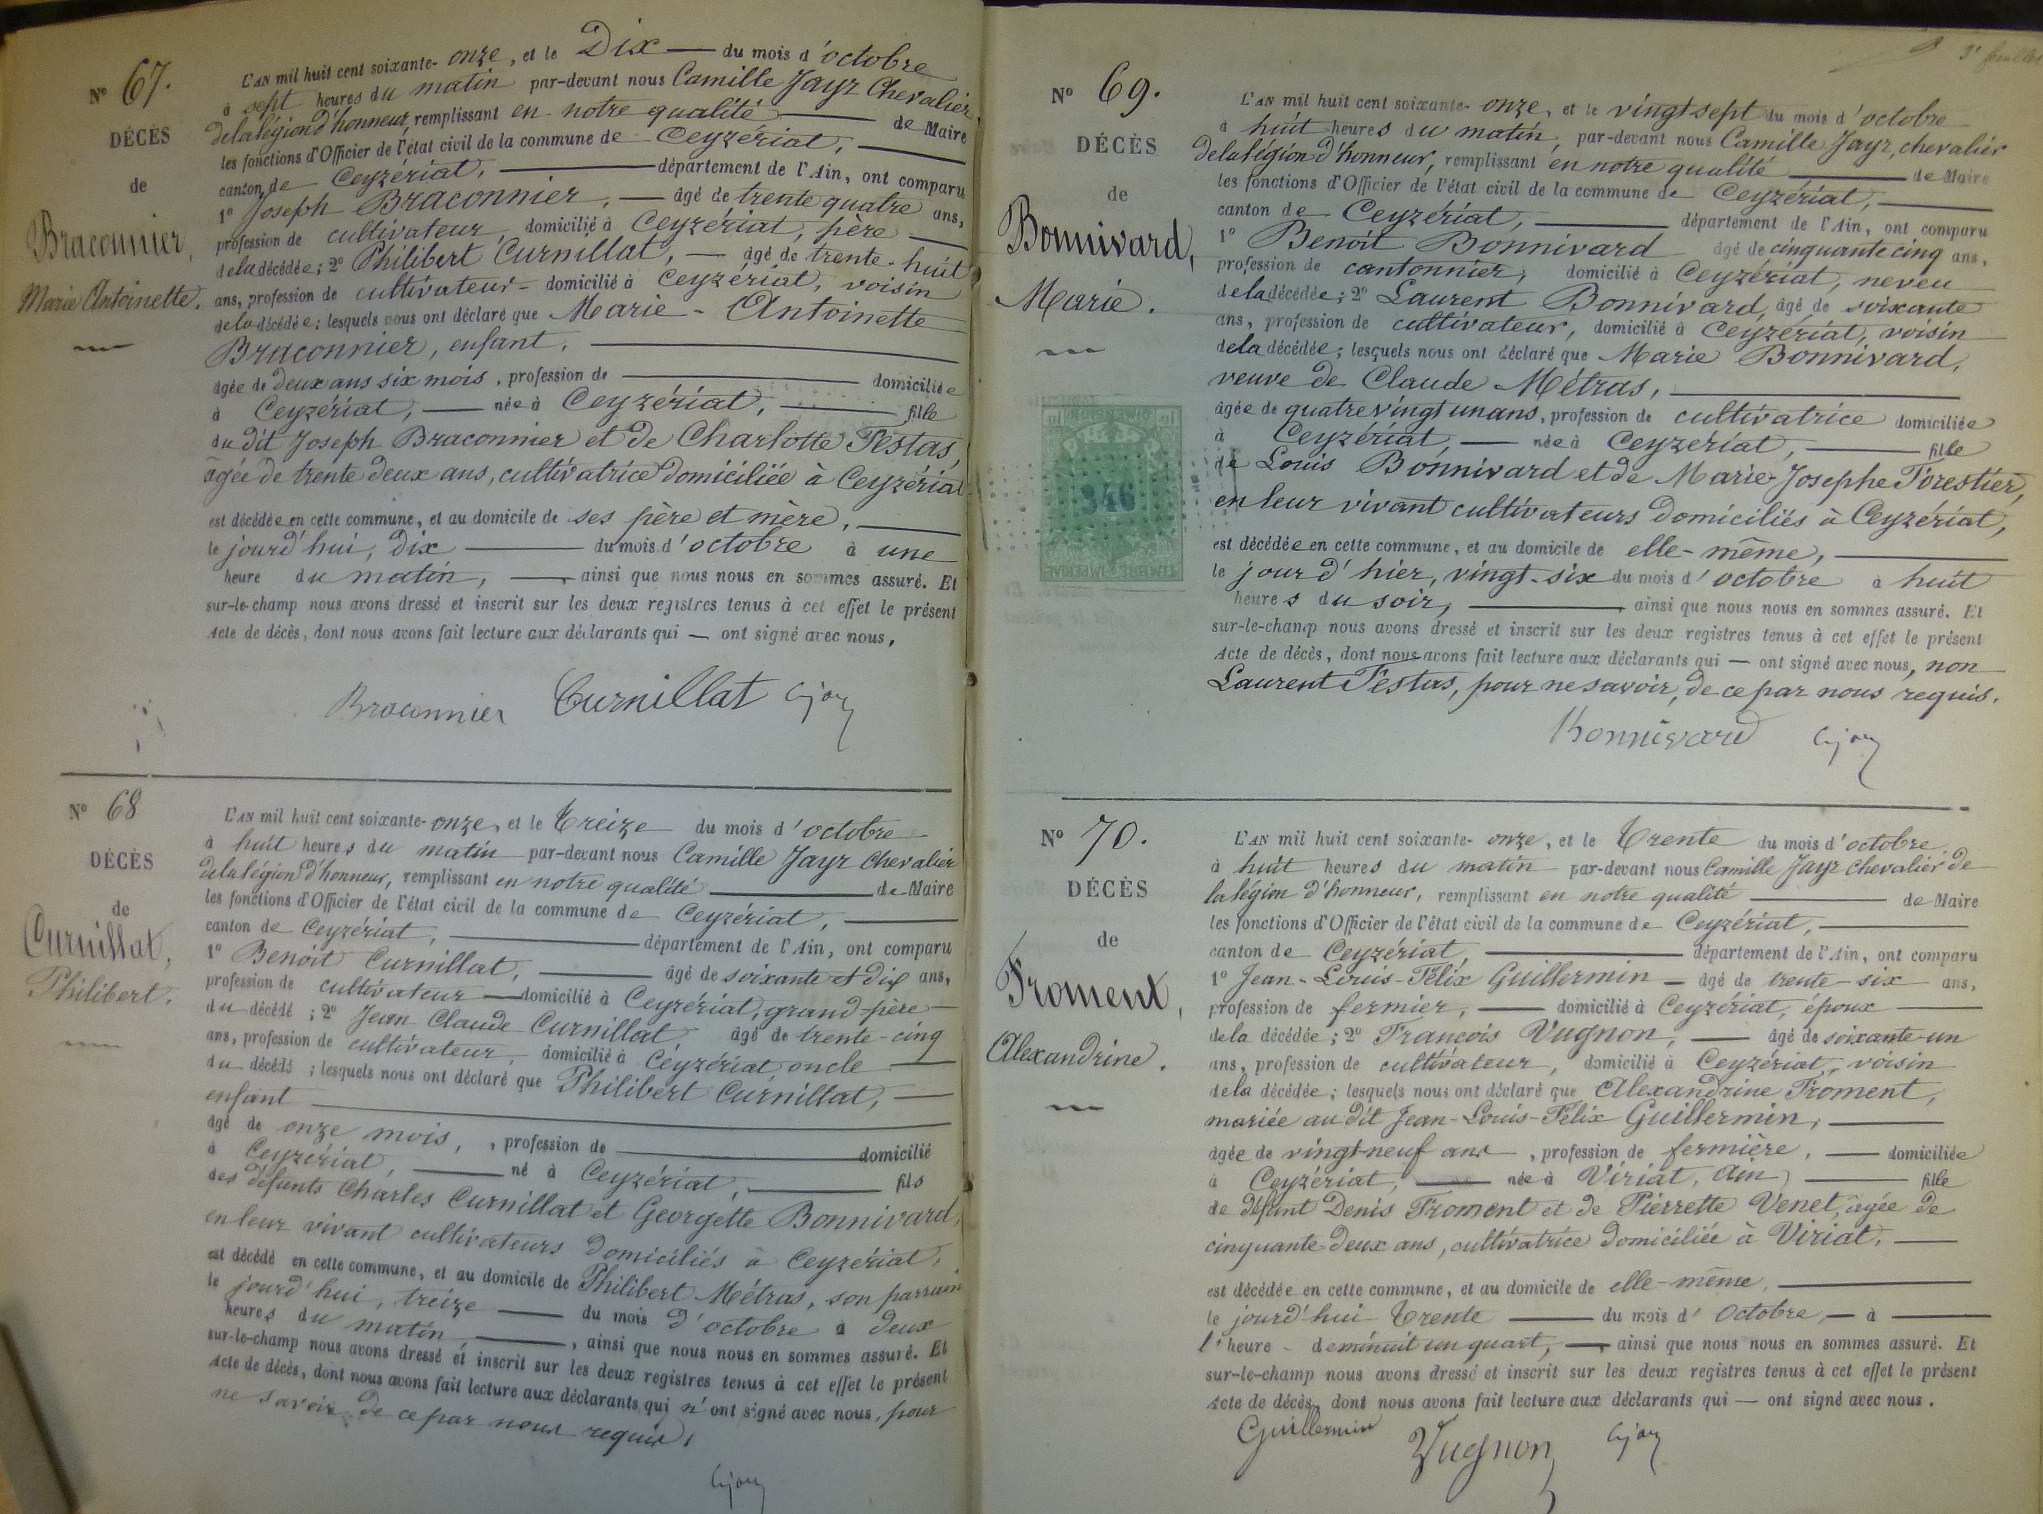 Nº 67.
DÉCÈS
de
Braconnier,
Marie Antoinette.
L'AN mil huit cent soixante-onze, et le Dix du mois d'octobre
à sept heures du matin par-devant nous Camille Jayr Chevalier
de la légion d'honneur, remplissant en notre qualité de Maire
les fonctions d'Officier de l'état civil de la commune de Ceyzériat,
canton de Ceyzériat, département de l'Ain, ont comparu
1º Joseph Braconnier, âgé de trente quatre ans,
profession de cultivateur, domicilié à Ceyzériat, père
de la décédée; 2º Philibert Curnillat, âgé de trente-huit
ans, profession de cultivateur domicilié à Ceyzériat, voisin
de la décédée; lesquels nous ont déclaré que Marie-Antoinette
Braconnier, enfant,
âgée de deux ans six mois, profession de domiciliée
à Ceyzériat, née à Ceyzériat, fille
du dit Joseph Braconnier et de Charlotte Festas,
âgée de trente deux ans, cultivatrice domiciliée à Ceyzériat
est décédée en cette commune, et au domicile de ses père et mère,
le jourd'hui, dix du mois d'octobre à une
heure du matin, ainsi que nous nous en sommes assuré. Et
sur-le-champ nous avons dressé et inscrit sur les deux registres tenus à cet effet le présent
Acte de décès, dont nous avons fait lecture aux déclarants qui — ont signé avec nous.
Braconnier Curnillat
Nº 68
DÉCÈS
de
Curnillat,
Philibert.
L'AN mil huit cent soixante-onze, et le Treize du mois d'octobre
à huit heures du matin par-devant nous Camille Jayr Chevalier
de la légion d'honneur, remplissant en notre qualité de Maire
les fonctions d'Officier de l'état civil de la commune de Ceyzériat,
canton de Ceyzériat, département de l'Ain, ont comparu
1º Benoit Curnillat, âgé de soixante et dix ans,
profession de cultivateur domicilié à Ceyzériat, grand-père
du décédé; 2º Jean Claude Curnillat âgé de trente-cinq
ans, profession de cultivateur, domicilié à Ceyzériat oncle
du décédé; lesquels nous ont déclaré que Philibert Curnillat,
enfant
âgé de onze mois, profession de domicilié
à Ceyzériat, né à Ceyzériat, fils
des défunts Charles Curnillat et Georgette Bonnivard,
en leur vivant cultivateurs domiciliés à Ceyzériat,
est décédé en cette commune, et au domicile de Philibert Métras, son parrain
le jourd'hui, treize du mois d'octobre à deux
heures du matin, ainsi que nous nous en sommes assuré. Et
sur-le-champ nous avons dressé et inscrit sur les deux registres tenus à cet effet le présent
Acte de décès, dont nous avons fait lecture aux déclarants qui n'ont signé avec nous, pour
ne savoir, de ce par nous requis.
Nº 69.
DÉCÈS
de
Bonnivard,
Marie.
346
L'AN mil huit cent soixante-onze, et le vingt sept du mois d'octobre
à huit heures du matin, par-devant nous Camille Jayr, chevalier
de la légion d'honneur, remplissant en notre qualité de Maire
les fonctions d'Officier de l'état civil de la commune de Ceyzériat,
canton de Ceyzériat, département de l'Ain, ont comparu
1º Benoit Bonnivard âgé de cinquante cinq ans,
profession de cantonnier, domicilié à Ceyzériat, neveu
de la décédée; 2º Laurent Bonnivard, âgé de soixante
ans, profession de cultivateur, domicilié à Ceyzériat, voisin
de la décédée; lesquels nous ont déclaré que Marie Bonnivard,
veuve de Claude Métras,
âgée de quatre vingt un ans, profession de cultivatrice domiciliée
à Ceyzériat, née à Ceyzériat, fille
de Louis Bonnivard et de Marie Josephe Forestier,
en leur vivant cultivateurs domiciliés à Ceyzériat,
est décédée en cette commune, et au domicile de elle-même,
le jour d'hier, vingt-six du mois d'octobre à huit
heures du soir, ainsi que nous nous en sommes assuré. Et
sur-le-champ nous avons dressé et inscrit sur les deux registres tenus à cet effet le présent
Acte de décès, dont nous avons fait lecture aux déclarants qui — ont signé avec nous, non
Laurent Festas, pour ne savoir, de ce par nous requis.
Bonnivard
Nº 70.
DÉCÈS
de
Froment,
Alexandrine.
L'AN mil huit cent soixante-onze, et le Trente du mois d'octobre
à huit heures du matin par-devant nous Camille Jayr Chevalier de
la légion d'honneur, remplissant en notre qualité de Maire
les fonctions d'Officier de l'état civil de la commune de Ceyzériat,
canton de Ceyzériat, département de l'Ain, ont comparu
1º Jean-Louis-Félix Guillermin — âgé de trente-six ans,
profession de fermier, domicilié à Ceyzériat, époux
de la décédée; 2º François Vugnon, âgé de soixante-un
ans, profession de cultivateur, domicilié à Ceyzériat, voisin
de la décédée; lesquels nous ont déclaré que Alexandrine Froment,
mariée au dit Jean-Louis-Félix Guillermin,
âgée de vingt-neuf ans, profession de fermière, domiciliée
à Ceyzériat, née à Viriat, Ain, fille
de défunt Denis Froment et de Pierrette Venet, âgée de
cinquante deux ans, cultivatrice domiciliée à Viriat,
est décédée en cette commune, et au domicile de elle-même,
le jourd'hui Trente du mois d'Octobre, à
l'heure de minuit un quart, ainsi que nous nous en sommes assuré. Et
sur-le-champ nous avons dressé et inscrit sur les deux registres tenus à cet effet le présent
Acte de décès, dont nous avons fait lecture aux déclarants qui — ont signé avec nous.
Guillermin Vugnon